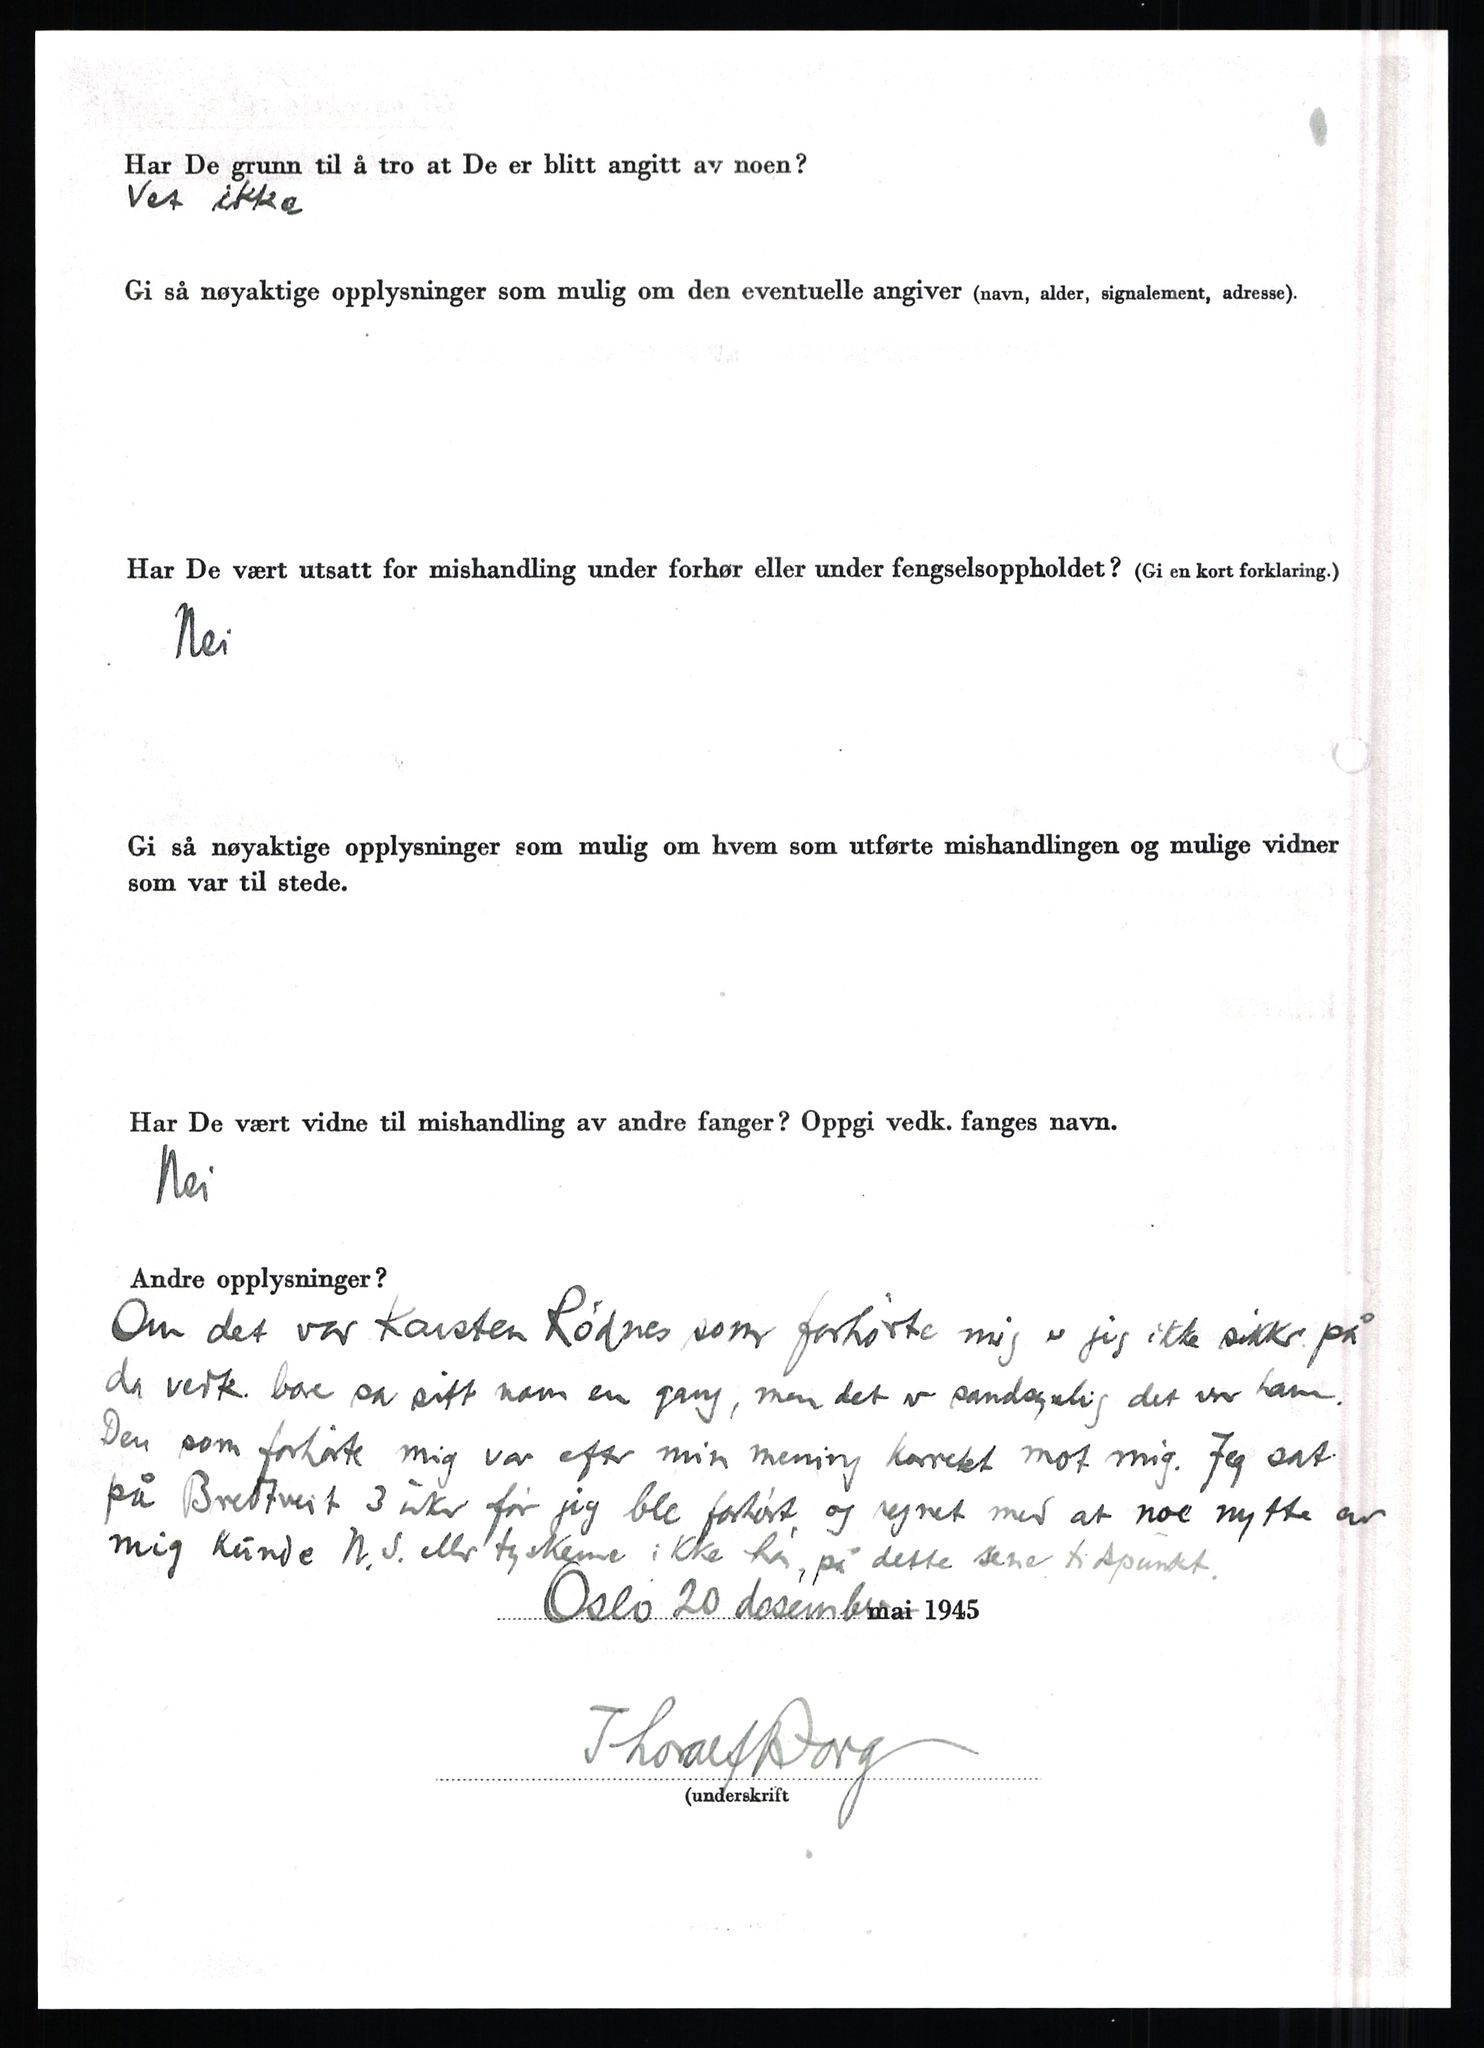 Har De grunn til å tro at De er blitt angitt av noen?
Vet ikke
Gi så nøyaktige opplysninger som mulig om den eventuelle angiver (navn, alder, signalement, adresse).
Har De vært utsatt for mishandling under forhør eller under fengselsoppholdet? (Gi en kort forklaring.)
Nei
Gi så nøyaktige opplysninger som mulig om hvem som utførte mishandlingen og mulige vidner
som var til stede.
Har De vært vidne til mishandling av andre fanger? Oppgi vedk. fanges navn.
Nei
Andre opplysninger?
Om det var Karsten Rödnes som forhørte mig er jeg ikke sikker på
da vedk. bare sa sitt navn en gang, men det er sandsynlig det var ham.
Den som forhørte mig var efter min mening korrekt mot mig. Jeg sat
på Bredtveit 3 uker før jeg ble forhørt, og regnet med at noe nytte av
mig kunde N.S. eller tyskerne ikke ha, på dette sene tidspunkt.
Oslo 20 desember mai 1945
Thoralf Borg
(underskrift